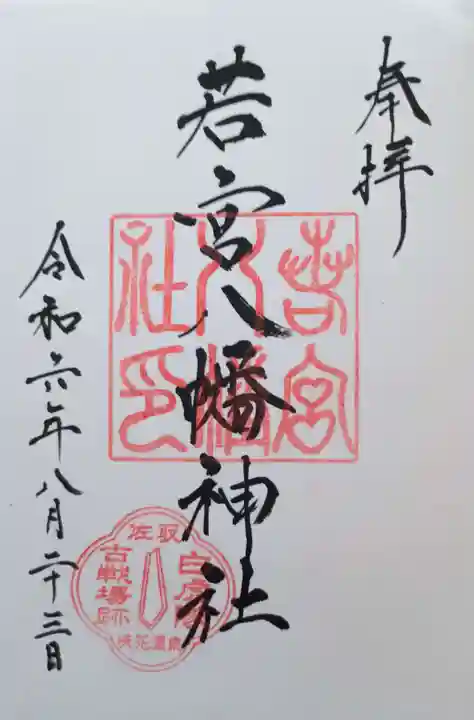 奉拝
若宮八幡神社
若宮
八幡
社印
令和六年八月二十三日
白虎隊
古戦場跡